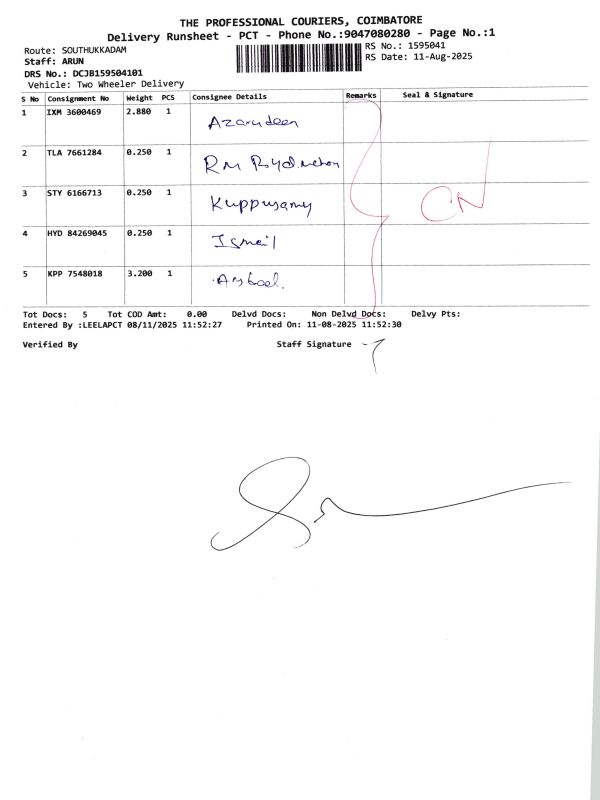 THE PROFESSIONAL COURIERS, COIMBATORE
Delivery Runsheet - PCT - Phone No.:9047080280 - Page No.:1
Route: SOUTHUKKADAM
RS No.: 1595041
Staff: ARUN
RS Date: 11-Aug-2025
DRS No.: DCJB159504101
Vehicle: Two Wheeler Delivery
S No Consignment No Weight PCS Consignee Details Remarks Seal & Signature
1 IXM 3600469 2.880 1 Azarudeen
2 TLA 7661284 0.250 1 RM
3 STY 6166713 0.250 1 Kuppusamy
CN
4 HYD 84269045 0.250 1 Ismail
5 KPP 7548018 3.200 1
Tot Docs: 5 Tot COD Amt: 0.00 Delvd Docs: Non Delvd Docs: Delvy Pts:
Entered By :LEELAPCT 08/11/2025 11:52:27 Printed On: 11-08-2025 11:52:30
Verified By Staff Signature